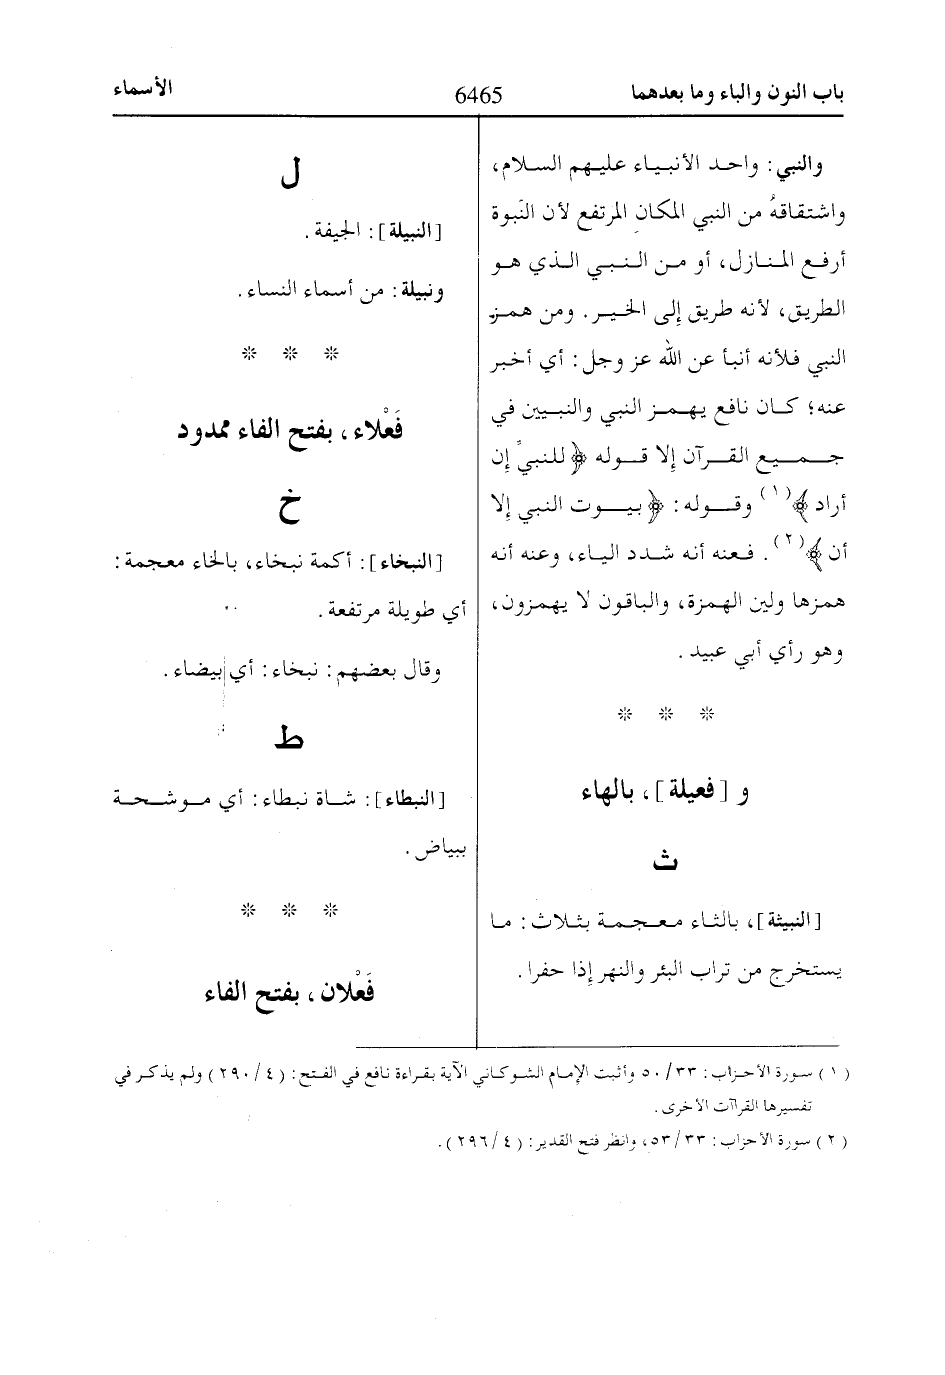 باب النون والباء وما بعدهما
6465
الأسماء
والنبي: واحد الأنبياء عليهم السلام،
واشتقاقهُ من النبي المكان المرتفع لأن النَبوة
أرفع المنازل، أو من النبي الذي هو
الطريق، لأنه طريق إلى الخير. ومن همز
النبي فلأنه أنبأ عن الله عز وجل: أي أخبر
عنه؛ كان نافع يهمز النبي والنبيين في
جميع القرآن إلا قوله ﴿للنبيِّ إن
أراد﴾(١) وقوله: ﴿بيوت النبي إلا
أن﴾(٢). فعنه أنه شدد الياء، وعنه أنه
همزها ولين الهمزة، والباقون لا يهمزون،
وهو رأي أبي عبيد.
* * *
و [فعيلة]، بالهاء
ث
[النبيثة]، بالثاء معجمة بثلاث: ما
يستخرج من تراب البئر والنهر إذا حفرا.
ل
[النبيلة]: الجيفة.
ونبيلة: من أسماء النساء.
* * *
فَعْلاء، بفتح الفاء ممدود
خ
[النبخاء]: أكمة نبخاء، بالخاء معجمة:
أي طويلة مرتفعة.
وقال بعضهم: نبخاء: أي بيضاء.
ط
[النبطاء]: شاة نبطاء: أي موشحة
ببياض.
* * *
فَعْلان، بفتح الفاء
(١) سورة الأحزاب: ٣٣/ ٥٠ وأثبت الإمام الشوكاني الآية بقراءة نافع في الفتح: (٤/ ٢٩٠) ولم يذكر في
تفسيرها القراآت الأخرى.
(٢) سورة الأحزاب: ٣٣/ ٥٣، وانظر فتح القدير: (٤/ ٢٩٦).